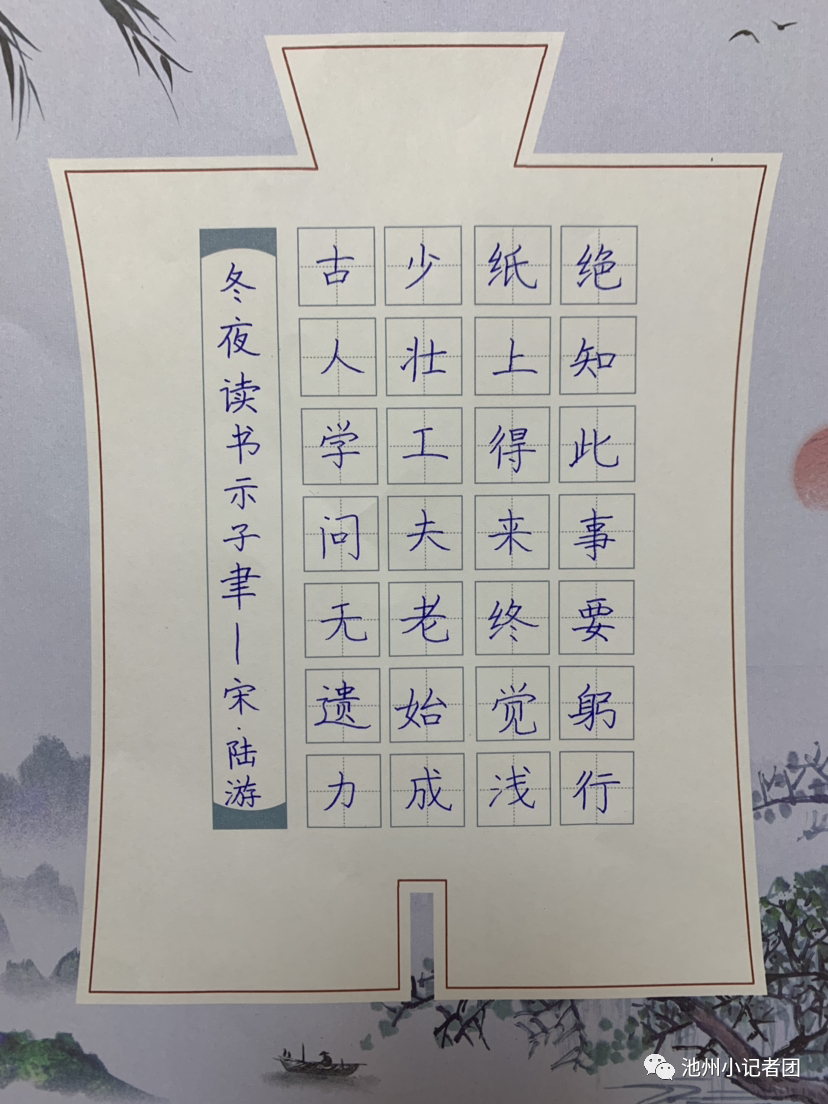 冬夜读书示子聿—宋·陆游
古人学问无遗力
少壮工夫老始成
纸上得来终觉浅
绝知此事要躬行
池州小记者团